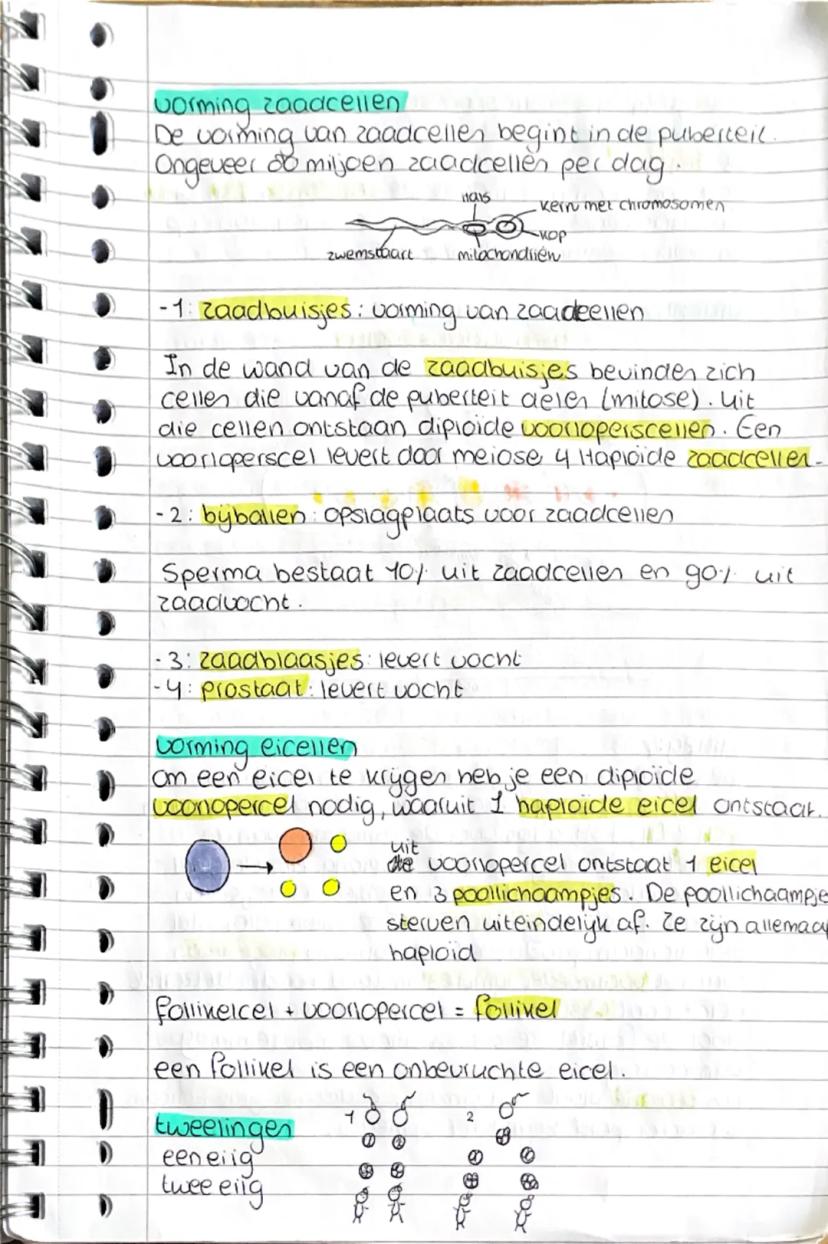 vorming zaadcellen
De vorming van zaadcellen begint in de puberteit.
Ongeveer 80 miljoen zaadcellen per dag.
hals
kern met chromosomen
kop
zwemstaart
mitochondriën
-1: zaadbuisjes: vorming van zaadcellen
In de wand van de zaadbuisjes bevinden zich
cellen die vanaf de puberteit delen (mitose). Uit
die cellen ontstaan diploïde voorloperscellen. Een
voorloperscel levert door meiose 4 Haploïde zaadcellen.
-2: bijballen: opslagplaats voor zaadcellen
Sperma bestaat 10% uit zaadcellen en 90% uit
zaadvocht.
-3: zaadblaasjes: levert vocht
-4: prostaat: levert vocht
vorming eicellen
om een eicel te krijgen heb je een diploïde
voorlopercel nodig, waaruit 1 haploïde eicel ontstaat.
uit
de voorlopercel ontstaat 1 eicel
en 3 poollichaampjes. De poollichaampje
sterven uiteindelijk af. Ze zijn allemaal
haploïd
follikelcel + voorlopercel = follikel
een follikel is een onbevruchte eicel.
tweelingen
1 2
eeneiig
twee eiig